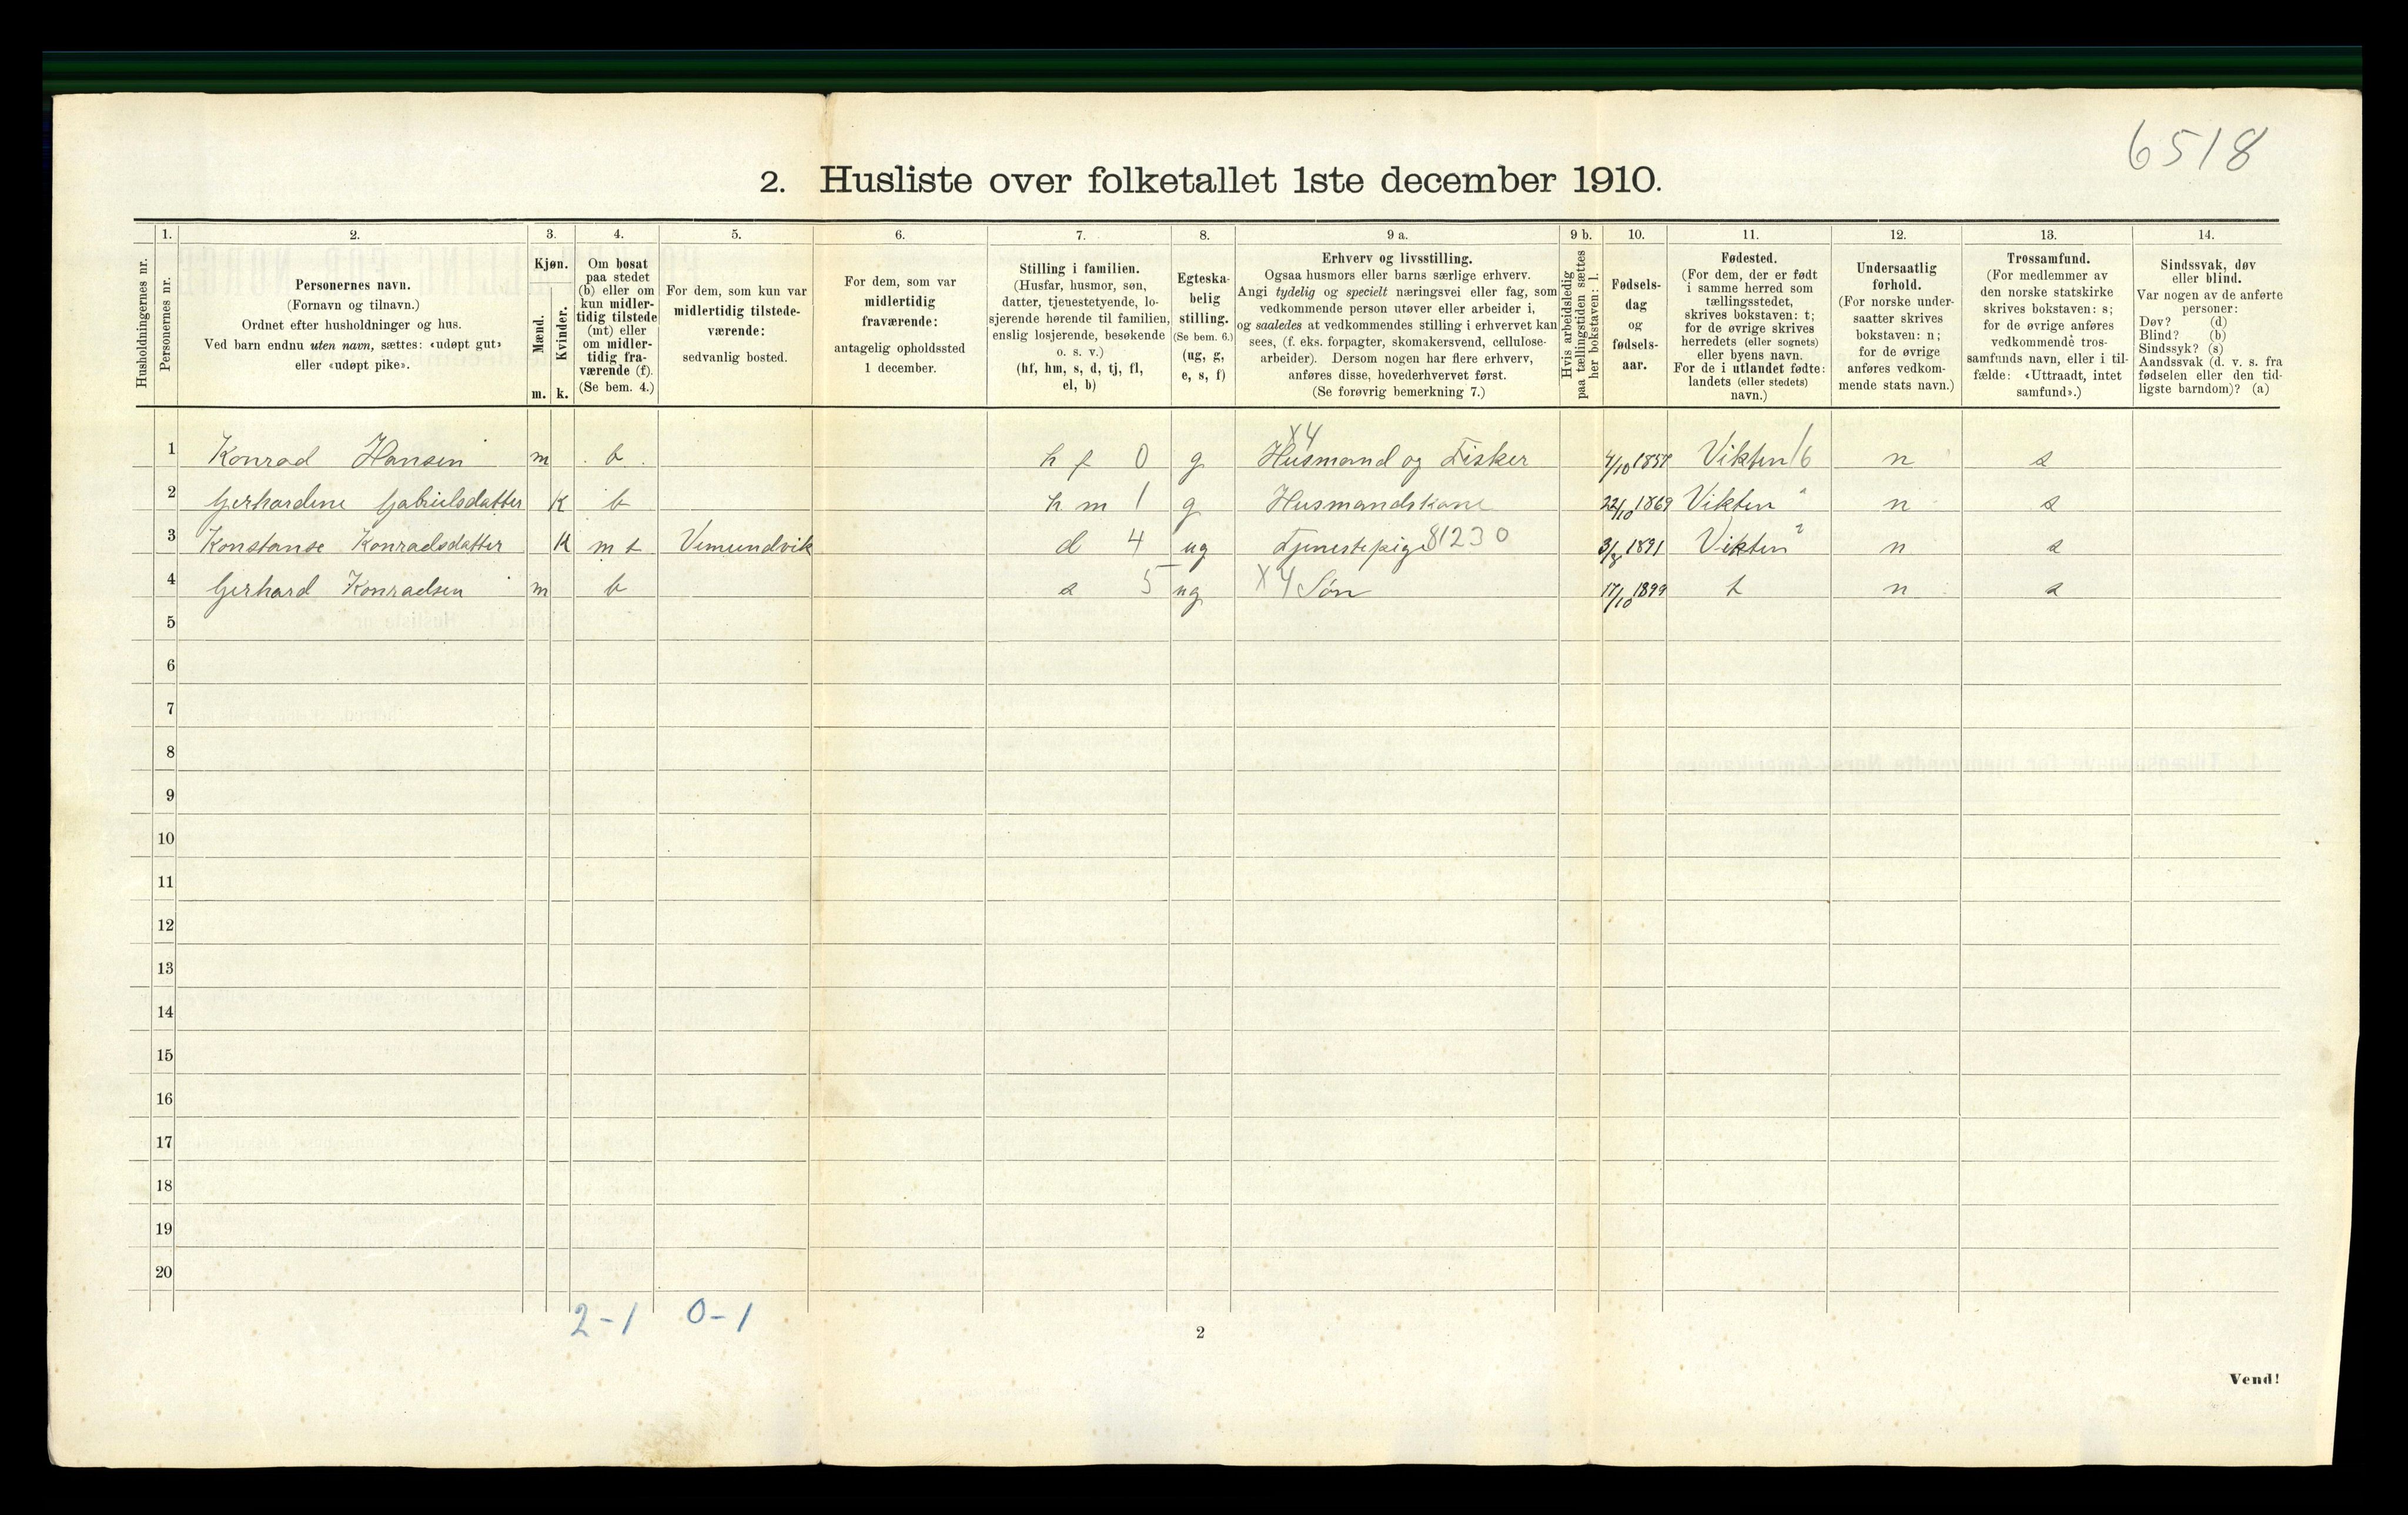 6518
2. Husliste over folketallet 1ste december 1910.
Husholdningernes nr.
1.
Personernes nr.
2.
Personernes navn.
(Fornavn og tilnavn.)
Ordnet efter husholdninger og hus.
Ved barn endnu uten navn, sættes: «udøpt gut»
eller «udøpt pike».
3.
Kjøn.
Mænd.
Kvinder.
m. k.
4.
Om bosat
paa stedet
(b) eller om
kun midler-
tidig tilstede
(mt) eller
om midler-
tidig fra-
værende (f).
(Se bem. 4.)
5.
For dem, som kun var
midlertidig tilstede-
værende:
sedvanlig bosted.
6.
For dem, som var
midlertidig
fraværende:
antagelig opholdssted
1 december.
7.
Stilling i familien.
(Husfar, husmor, søn,
datter, tjenestetyende, lo-
sjerende hørende til familien,
enslig losjerende, besøkende
o. s. v.)
(hf, hm, s, d, tj, fl,
el, b)
8.
Egteska-
belig
stilling.
(Se bem. 6.)
(ug, g,
e, s, f)
9 a.
Erhverv og livsstilling.
Ogsaa husmors eller barns særlige erhverv.
Angi tydelig og specielt næringsvei eller fag, som
vedkommende person utøver eller arbeider i,
og saaledes at vedkommendes stilling i erhvervet kan
sees, (f. eks. forpagter, skomakersvend, cellulose-
arbeider). Dersom nogen har flere erhverv,
anføres disse, hovederhvervet først.
(Se forøvrig bemerkning 7.)
9 b.
Hvis arbeidsledig
paa tællingstiden sættes
her bokstaven: l.
10.
Fødsels-
dag
og
fødsels-
aar.
11.
Fødested.
(For dem, der er født
i samme herred som
tællingsstedet,
skrives bokstaven: t;
for de øvrige skrives
herredets (eller sognets)
eller byens navn.
For de i utlandet fødte:
landets (eller stedets)
navn.)
12.
Undersaatlig
forhold.
(For norske under-
saatter skrives
bokstaven: n;
for de øvrige
anføres vedkom-
mende stats navn.)
13.
Trossamfund.
(For medlemmer av
den norske statskirke
skrives bokstaven: s;
for de øvrige anføres
vedkommende tros-
samfunds navn, eller i til-
fælde: «Uttraadt, intet
samfund».)
14.
Sindssvak, døv
eller blind.
Var nogen av de anførte
personer:
Døv? (d)
Blind? (b)
Sindssyk? (s)
Aandssvak (d. v. s. fra
fødselen eller den tid-
ligste barndom)? (a)
X4
1 Konrad Hansen m b h f 0 g Husmand og Fisker Vikten 16 n s
2 Gerhardine Gabrielsdatter K b h m 1 g Husmandskone 22/10 1869 Vikten " n s
3 Konstanse Konradsdatter K m t Vemundvik d 4 ug Tjenestepige 81230 3/8 1891 Vikten n s
4 Gerhard Konradsen m b s 5 ug X4 Søn 17/10 1899 t n s
5
6
7
8
9
10
11
12
13
14
15
16
17
18
19
20
2-1 0-1
2
Vend!